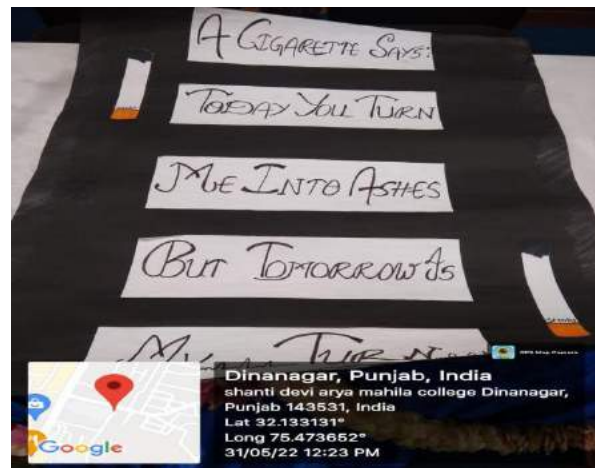 A CIGARETTE SAYS:
TODAY YOU TURN
ME INTO ASHES
BUT TOMORROW IS
MY TURN...
GPS Map Camera
Dinanagar, Punjab, India
shanti devi arya mahila college Dinanagar,
Punjab 143531, India
Lat 32.133131°
Long 75.473652°
31/05/22 12:23 PM
Google